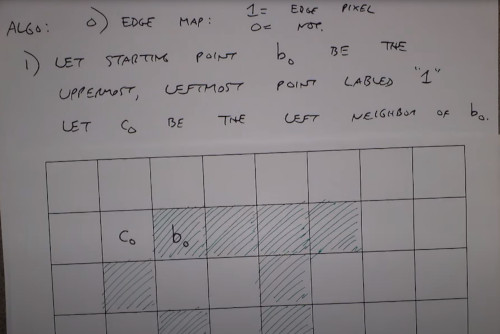 ALGO: 0) EDGE MAP: 1= EDGE PIXEL
0= NOT.
1) LET STARTING POINT b₀ BE THE
UPPERMOST, LEFTMOST POINT LABLED "1"
LET C₀ BE THE LEFT NEIGHBOR OF b₀.
C₀ b₀